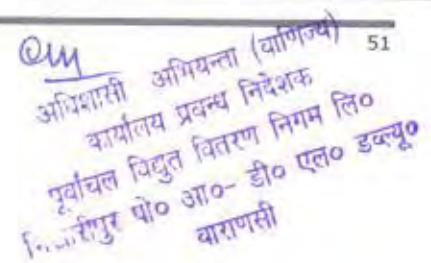 51
अधिशासी अभियन्ता (वाणिज्य)
कार्यालय प्रबन्ध निदेशक
पूर्वांचल विद्युत वितरण निगम लि०
पो० आ०- डी० एल० डब्ल्यू०
वाराणसी